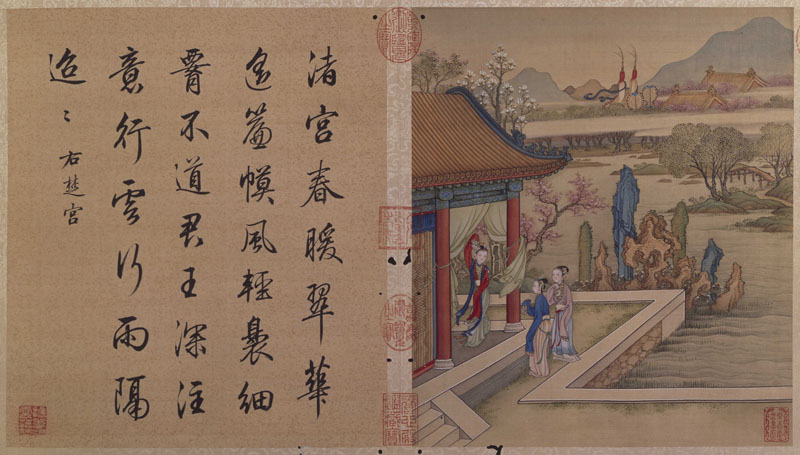 渚宮春暖翠華
遙簾幙風輕裊細
腰不道君王深注
意行雲行雨隔
迢〻右楚宮